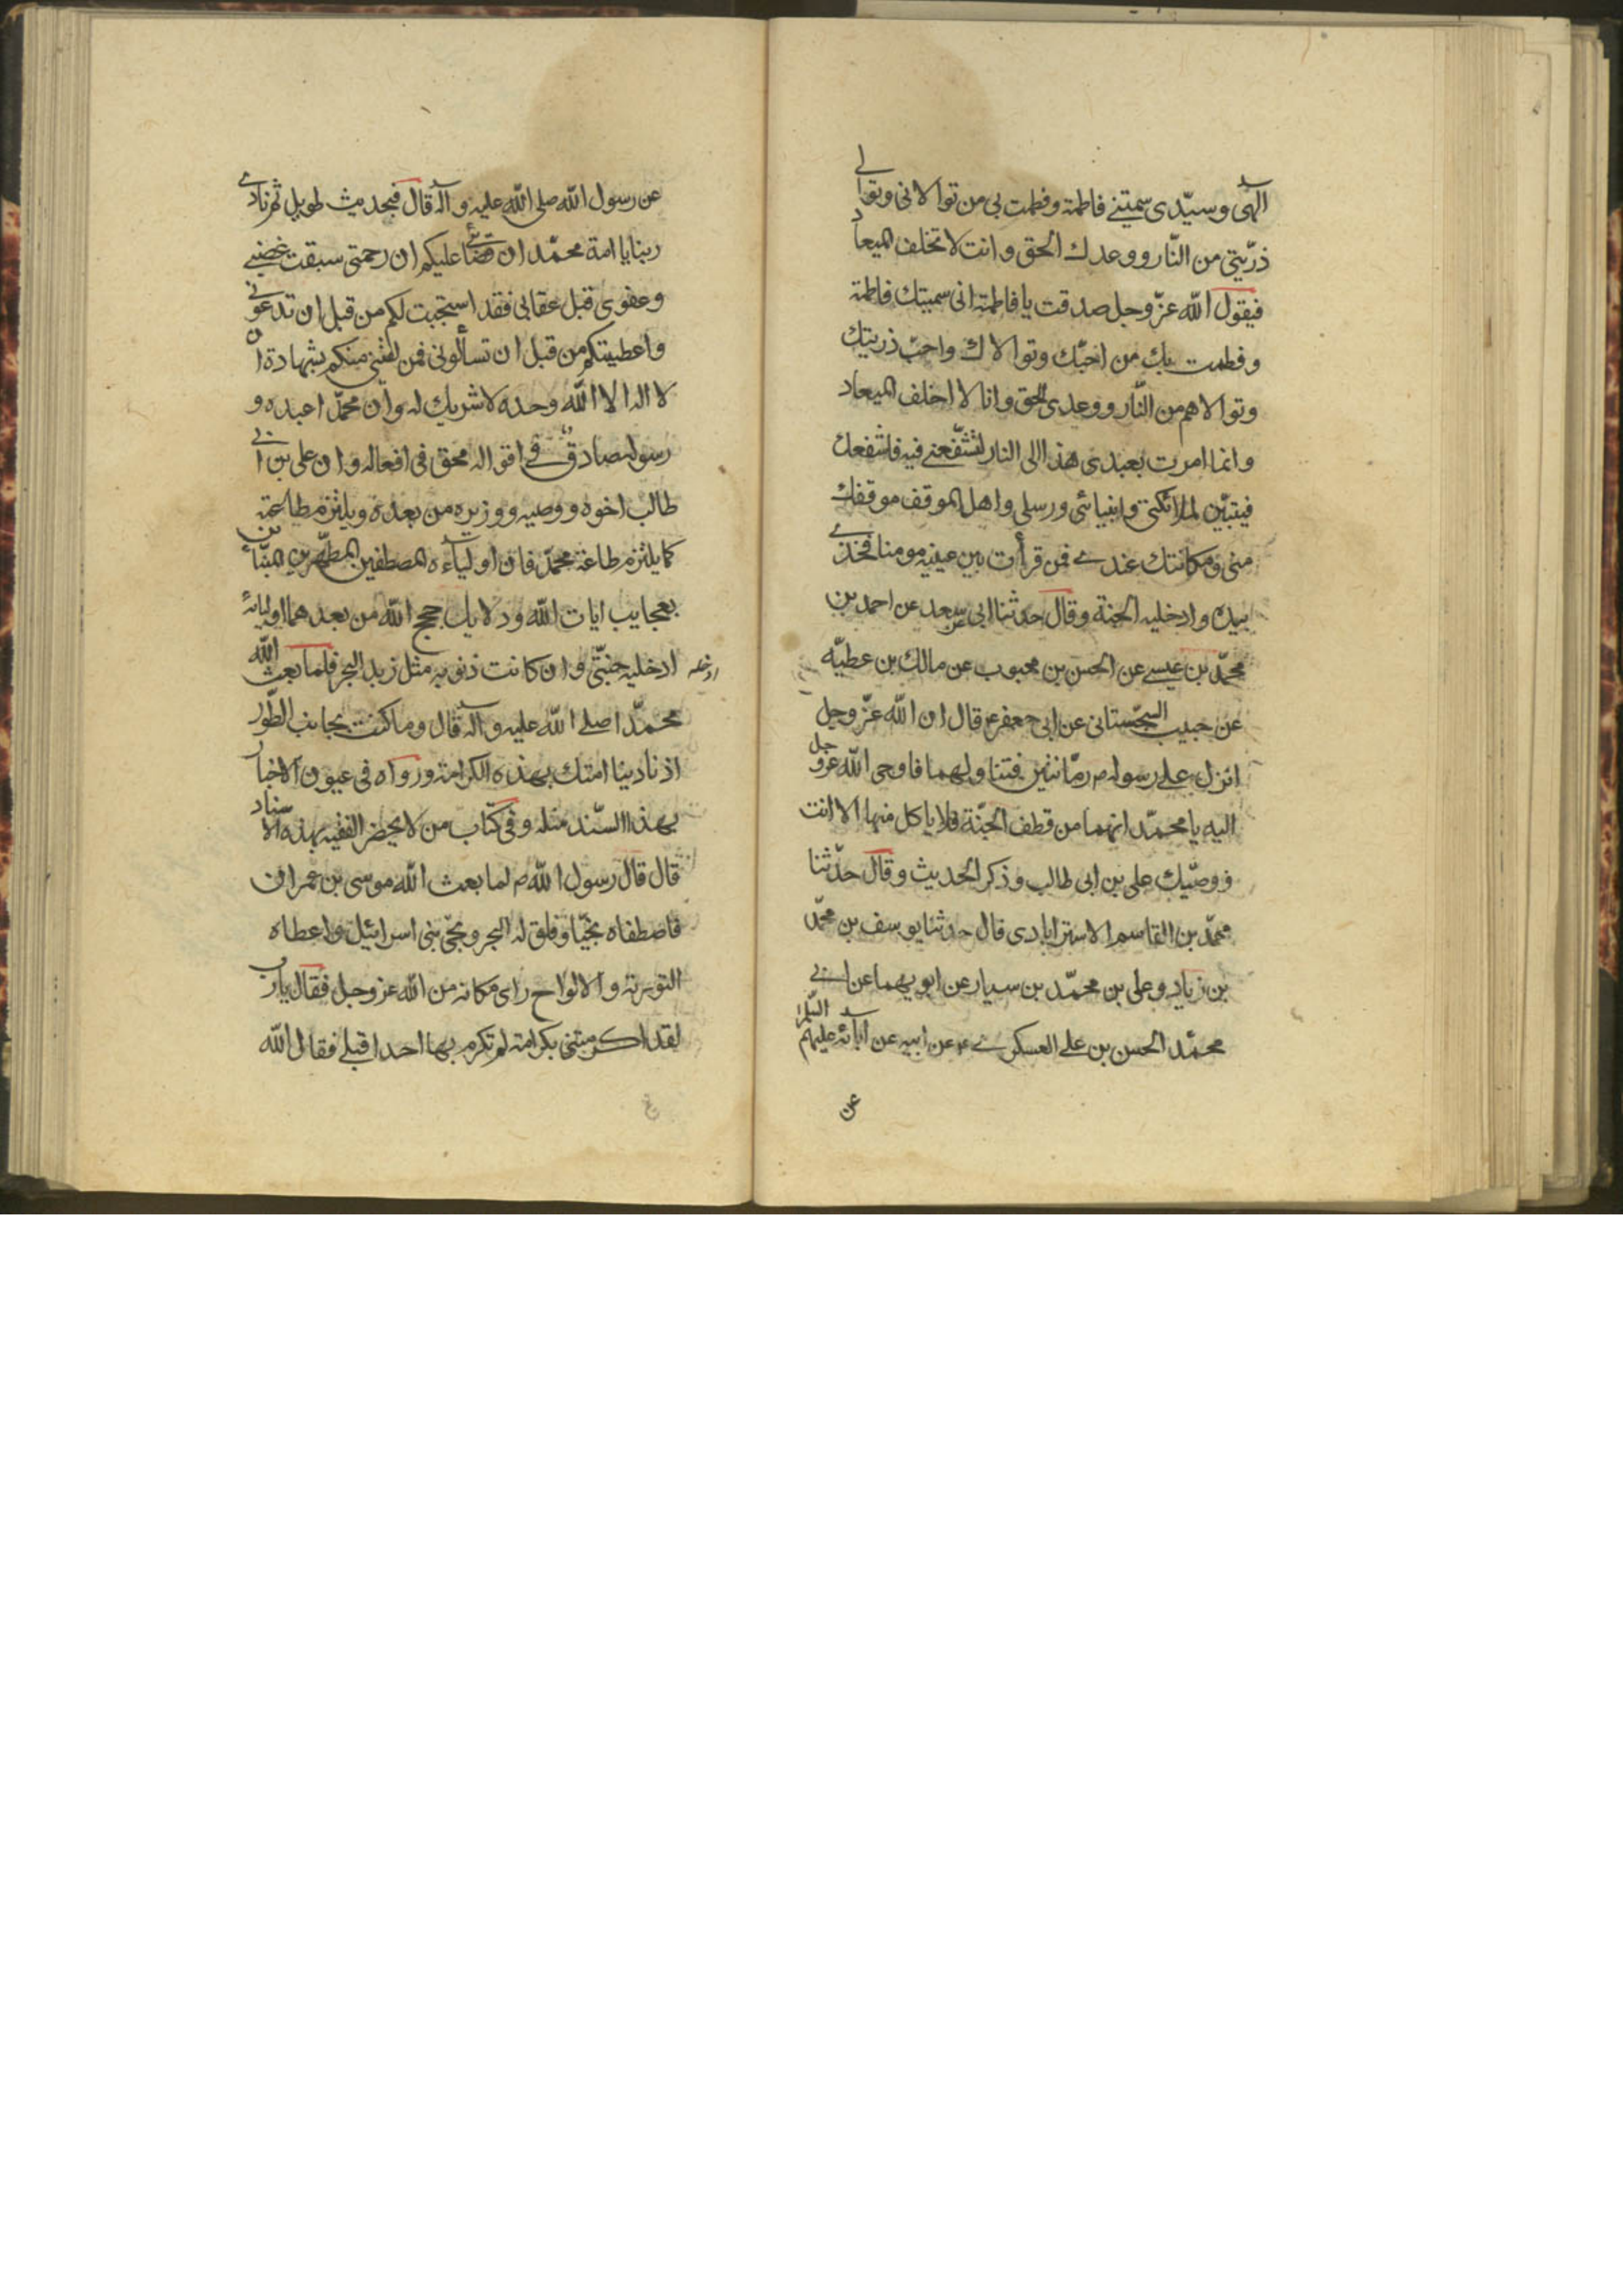 الهى وسيّدى سمّيتنى فاطمة وفطمت بى من توالانى وتوالى
ذرّيتى من النّار ووعدك الحق وانت لا تخلف الميعاد
فيقول الله عزّ وجل صدقت يا فاطمة انى سميتك فاطمة
وفطمت بك من احبّك وتوالاك واحبّ ذريتك
وتوالاهم من النّار ووعدى الحق وانا لا اخلف الميعاد
وانما امرت بعبدى هذا الى النار لتشفّعنى فيه فاشفعك
فيتبيّن لملائكتى وانبيائى ورسلى واهل الموقف موقفك
منى ومكانتك عندى فمن قرأت بين عينيه مومنا فخذى
بيده وادخليه الجنة وقال حدثنا ابى عن سعد عن احمد بن
محمّد بن عيسى عن الحسن بن محبوب عن مالك بن عطيّه
عن حبيب السجستانى عن ابى جعفر ع قال ان الله عزّ وجل
انزل على رسوله ص رمّانتين فتناولهما فاوحى الله عز وجل
اليه يا محمّد انهما من قطف الجنّة فلا ياكل منها الا انت
ووصيّك على بن ابى طالب وذكر الحديث وقال حدّثنا
محمّد بن القاسم الاسترابادى قال حدثنا يوسف بن محمّد
بن زياد وعلى بن محمّد بن سيار عن ابويهما عن ابى
محمّد الحسن بن على العسكرى ع عن ابيه عن آبائه عليهم السّلم
عن
عن رسول الله صلى الله عليه وآله قال فى حديث طويل ثم نادى
ربنا يا امة محمّد ان قضائى عليكم ان رحمتى سبقت غضبى
وعفوى قبل عقابى فقد استجبت لكم من قبل ان تدعونى
واعطيتكم من قبل ان تسألونى فمن لقينى منكم بشهادة ان
لا اله الا الله وحده لا شريك له وان محمّدا عبده و
رسوله صادق فى اقواله محق فى افعاله وان على بن ابى
طالب اخوه ووصيه ووزيره من بعده ويلتزم طاعته
كما يلتزم طاعة محمّد فان اولياءه المصطفين المطهرين المبائن
بعجايب ايات الله ودلايل حجج الله من بعدهما اوليائه
ادخليه جنّتى وان كانت ذنوبه مثل زبد البحر فلما بعث الله
محمّدا صلى الله عليه وآله قال وما كنت بجانب الطّور
اذ نادينا امتك بهذه الكرامة ورواه فى عيون الاخبار
بهذا السّند مثله وفى كتاب من لا يحضر الفقيه بهذه الاسناد
قال قال رسول الله ص لما بعث الله موسى بن عمران
فاصطفاه نجيّا وفلق له البحر ونجّى بنى اسرائيل واعطاه
التورية والالواح راى مكانه من الله عز وجل فقال يا رب
لقد اكرمتنى بكرامة لم تكرم بها احدا قبلى فقال الله